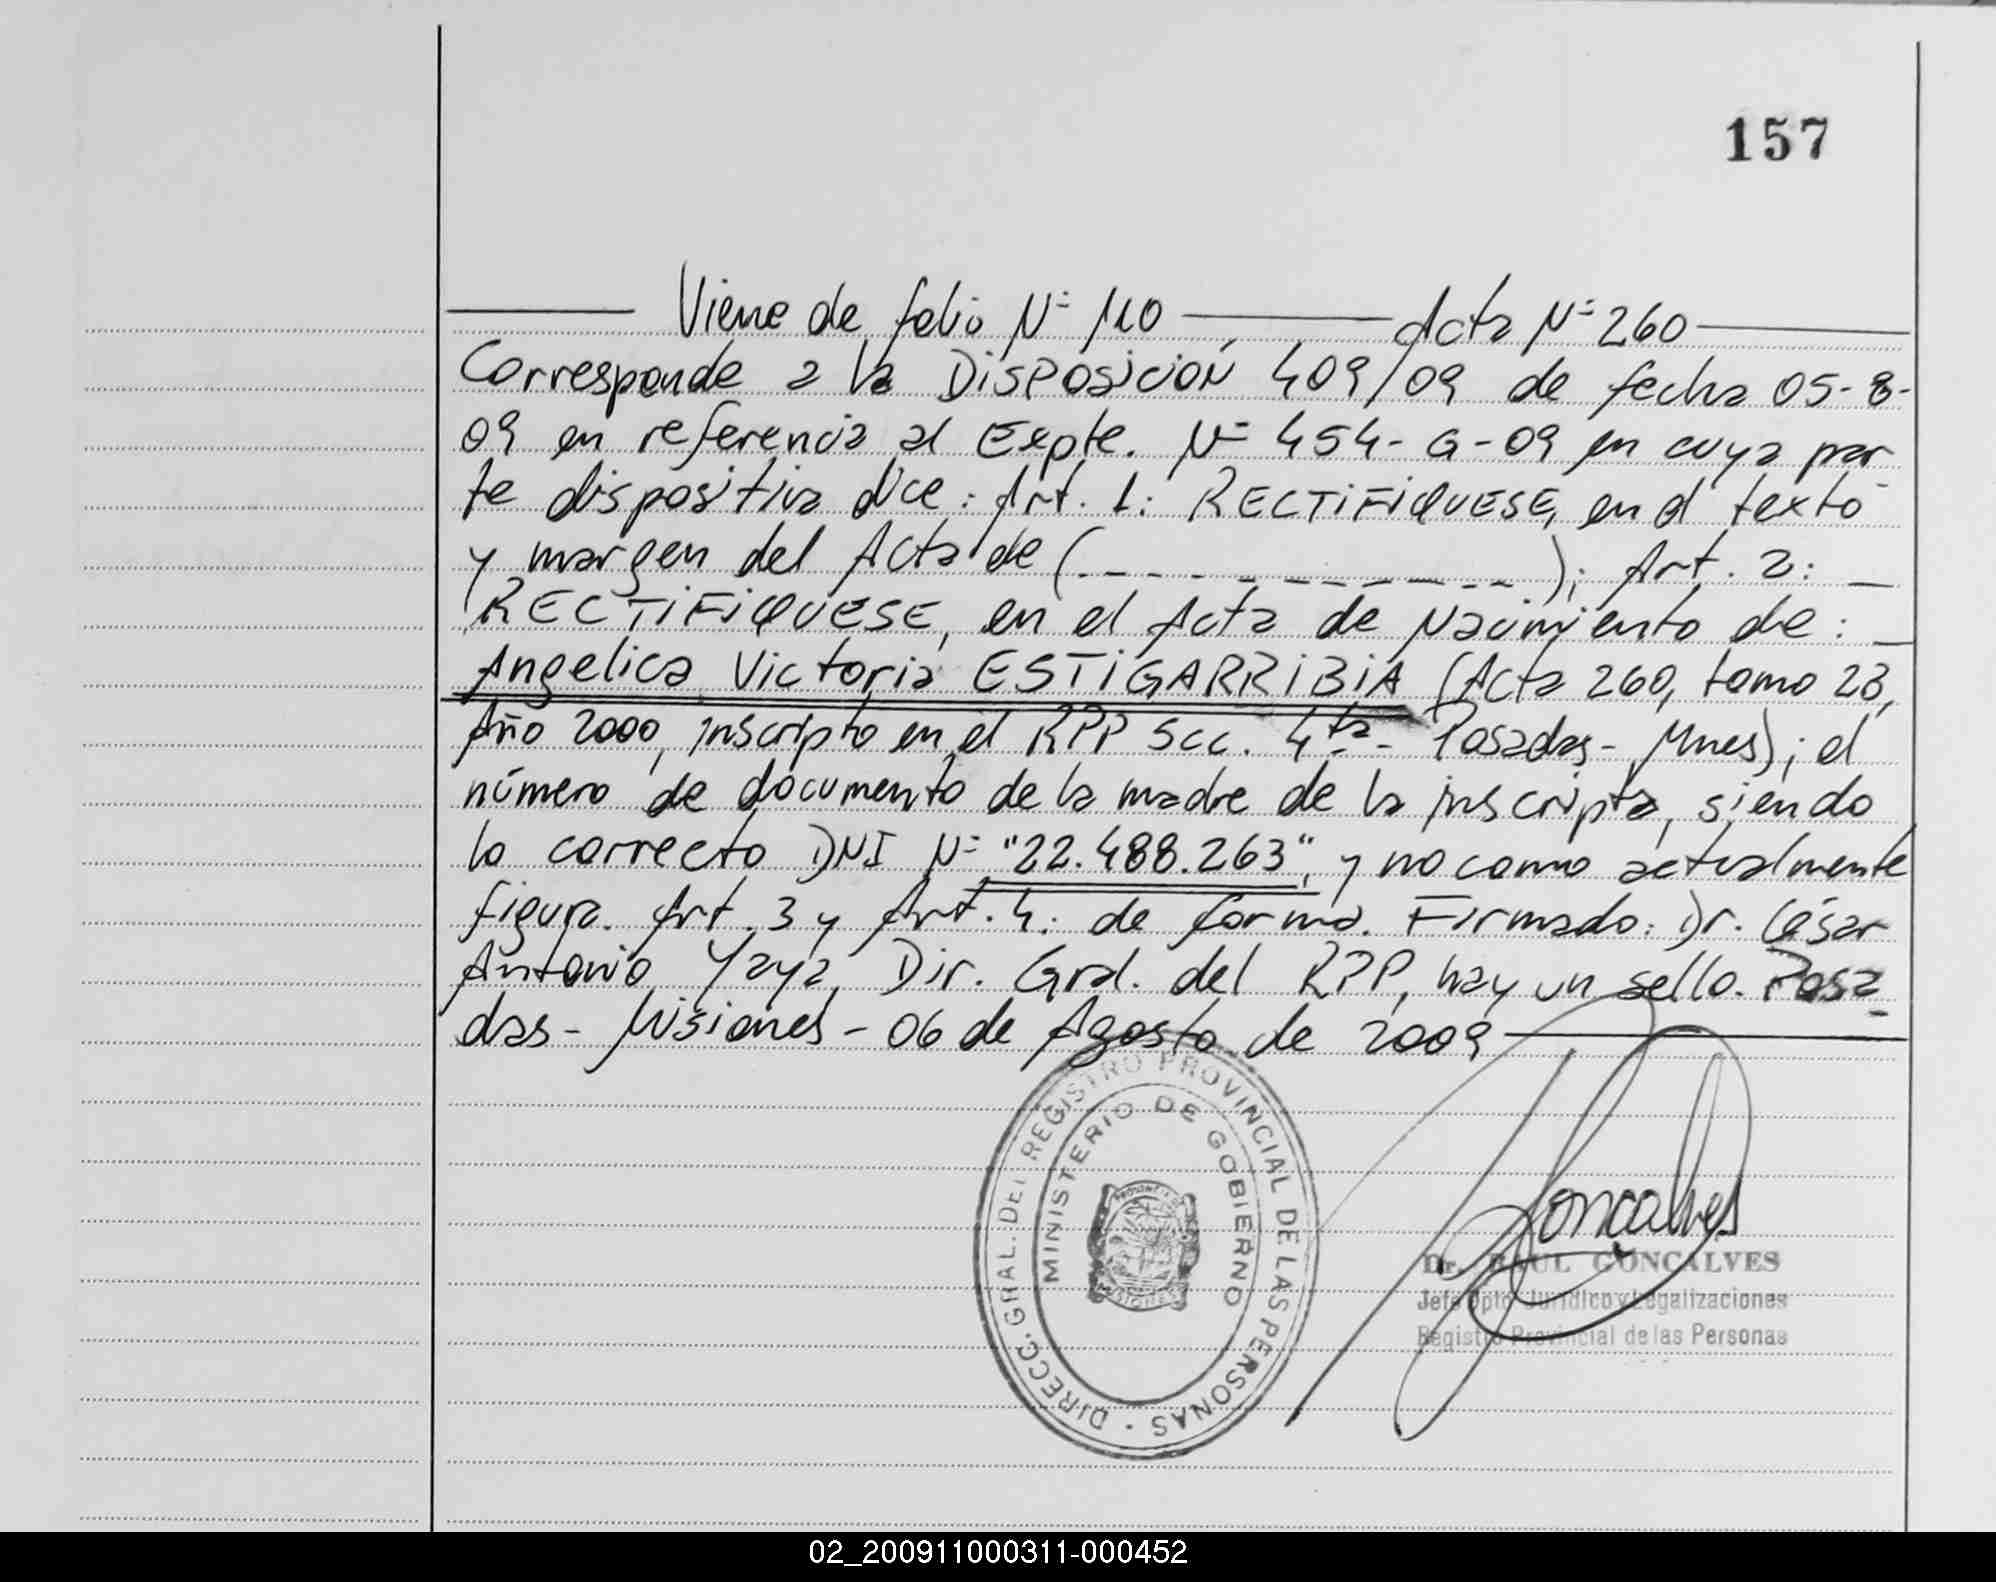 157
Viene de folio Nº 110 Acta Nº 260
Corresponde a la DISPOSICIÓN 409/09 de fecha 05-8-
09 en referencia al Expte. Nº 454-G-09 en cuya par
te dispositiva dice: Art. 1: RECTIFIQUESE, en el texto
y margen del Acta de (_ _ _ _ _ _ _ _ _ _ _); Art. 2: _
RECTIFIQUESE, en el Acta de Nacimiento de: _
Angelica Victoria ESTIGARRIBIA (Acta 260, tomo 23,
Año 2000, inscripto en el RPP Scc. 4ta - Posadas - Mnes); el
número de documento de la madre de la inscripta, siendo
lo correcto DNI Nº "22.488.263", y no como actualmente
figura. Art. 3 y Art. 4: de forma. Firmado: Dr. César
Antonio Yaya, Dir. Gral. del RPP, hay un sello. Posa
das - Misiones - 06 de Agosto de 2009
DIRECC. GRAL. DEL REGISTRO PROVINCIAL DE LAS PERSONAS
MINISTERIO DE GOBIERNO
Goncalves
Dr. RAUL GONCALVES
Jefe Dpto Jurídico y Legalizaciones
Registro Provincial de las Personas
02_200911000311-000452